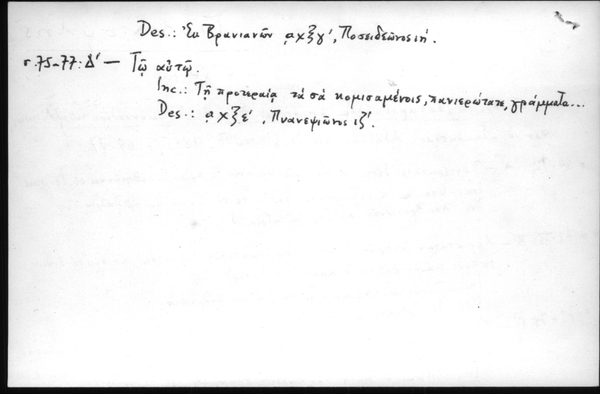 Des.: Ἐκ Βρανιανῶν ͵αχξγʹ, Ποσειδεῶνος ιηʹ.
σ. 75-77: Δʹ — Τῷ αὐτῷ.
Inc.: Τῇ προτεραίᾳ τὰ σὰ κομισαμένοις, πανιερώτατε, γράμματα...
Des.: ͵αχξεʹ, Πυανεψιῶνος ιζʹ.